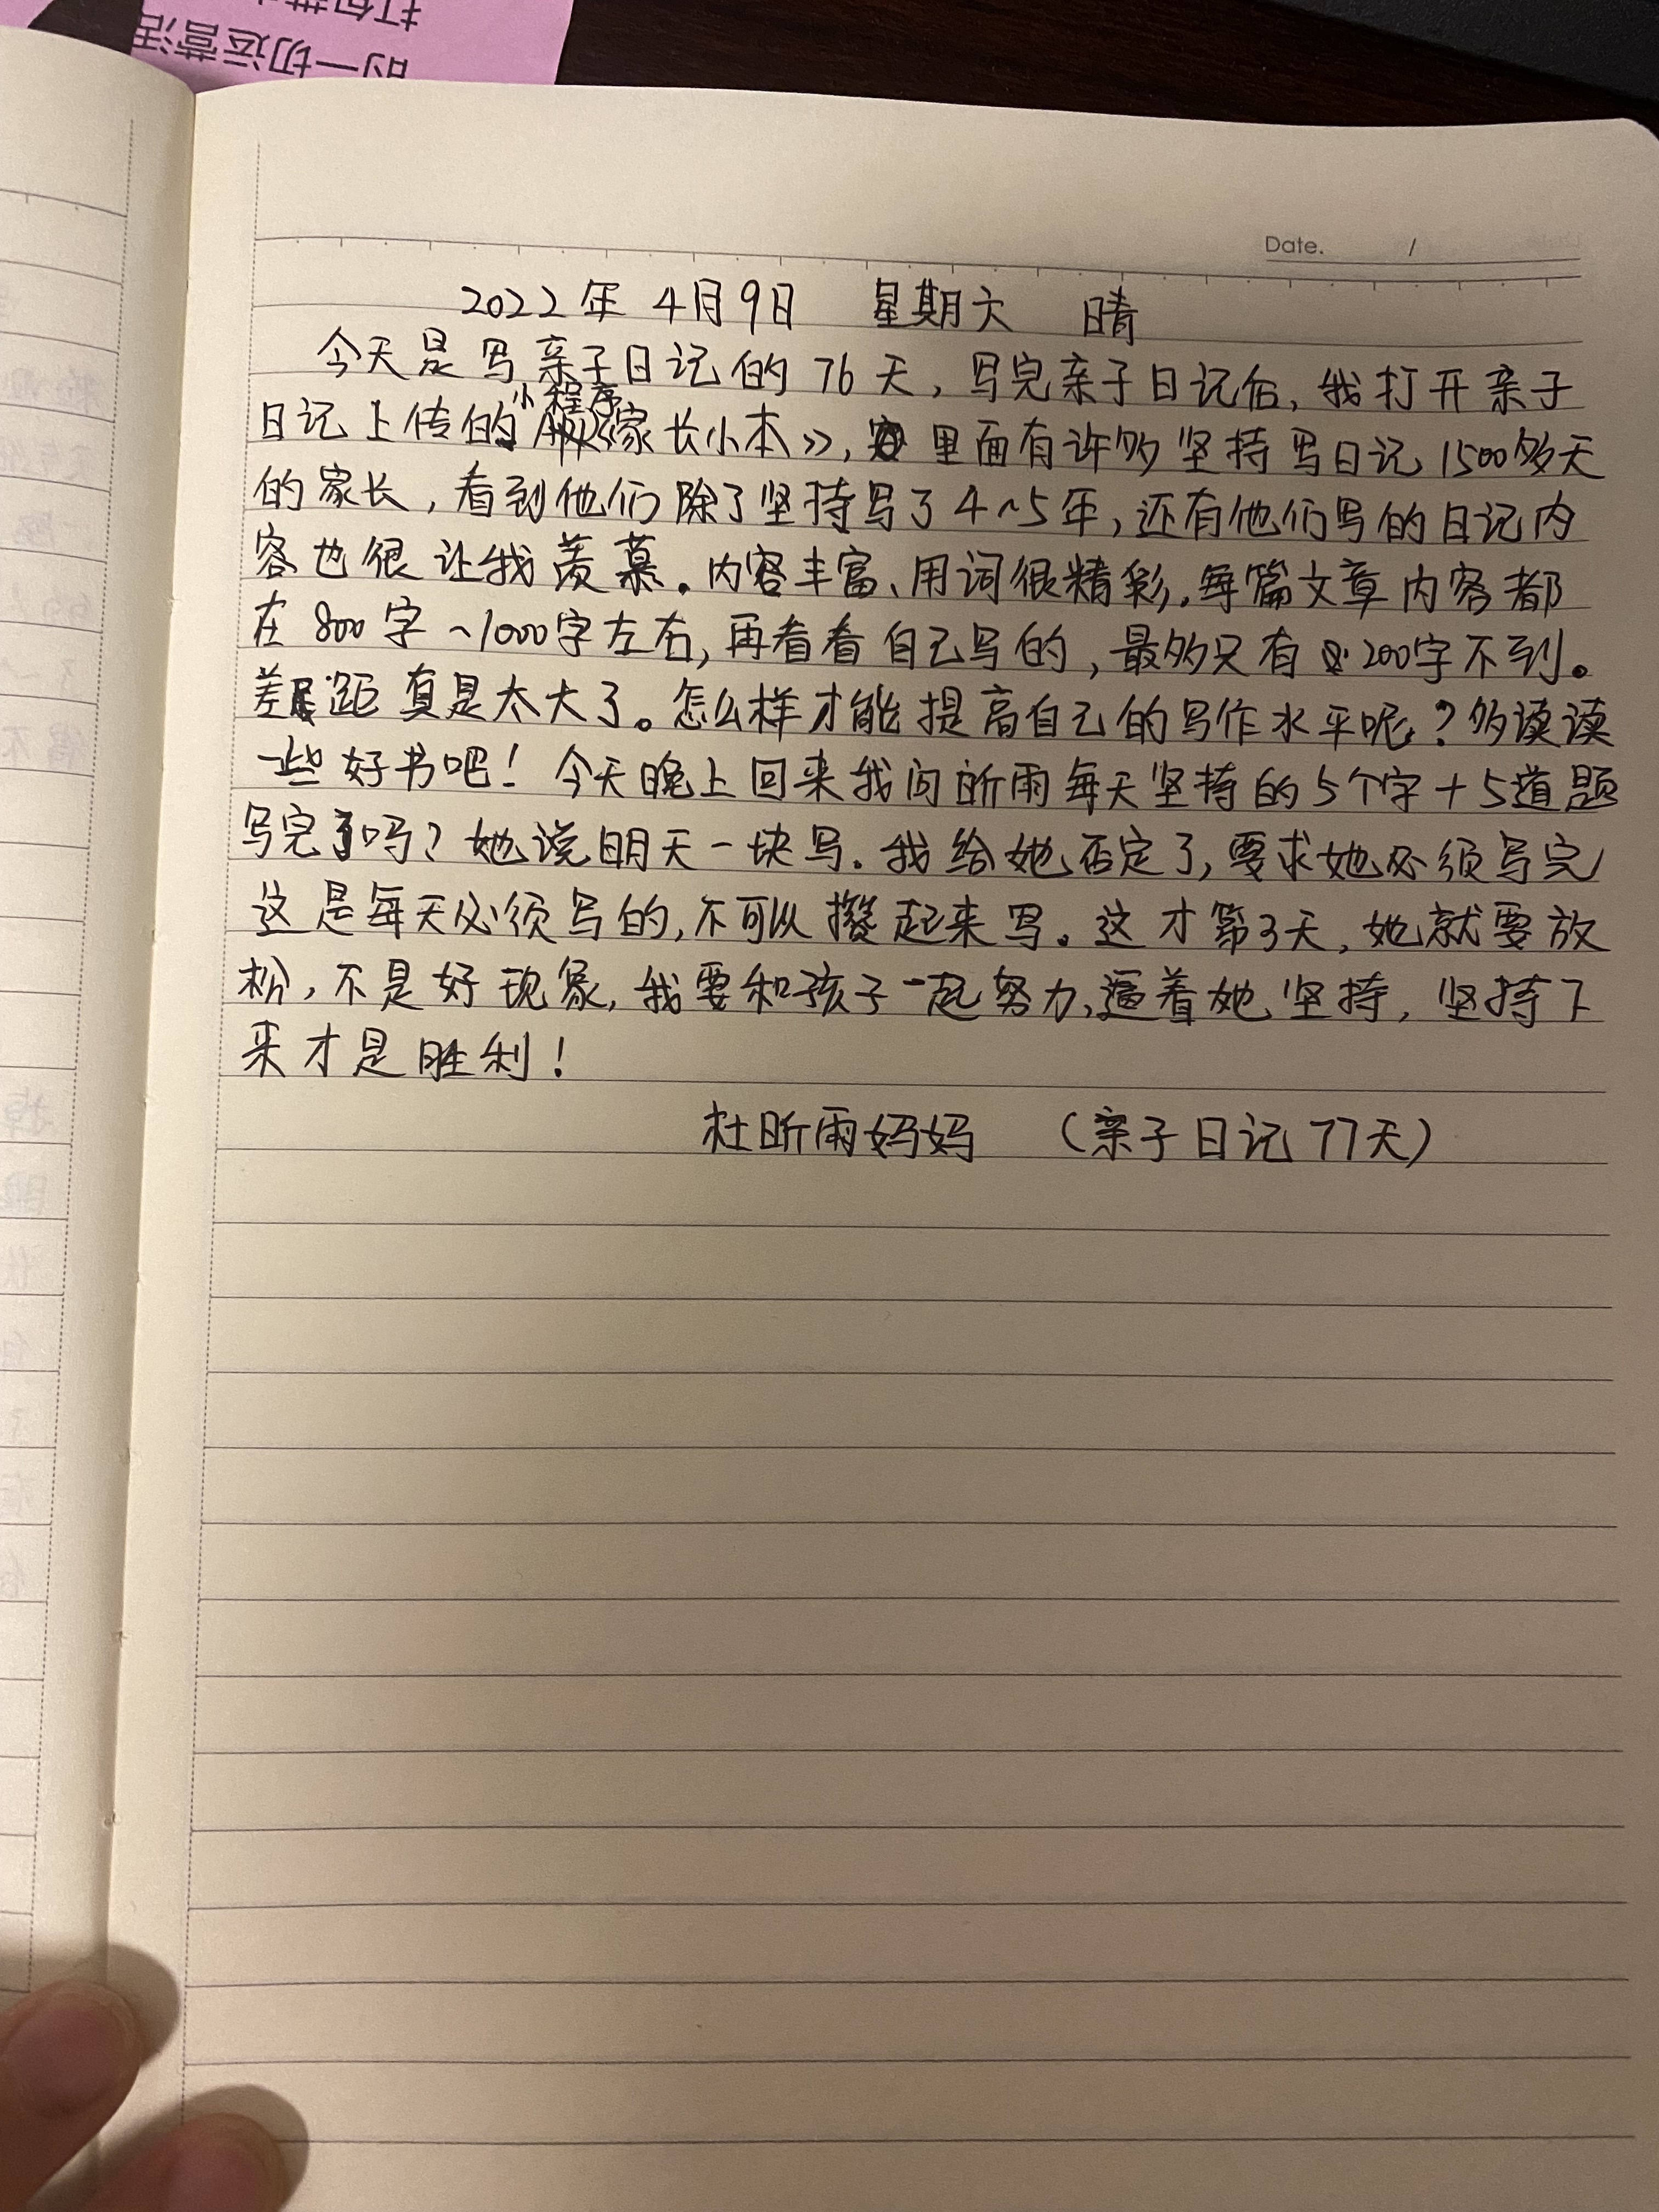 的一切运营活
Date. /
2022年 4月9日 星期六 晴
今天是写亲子日记的76天,写完亲子日记后,我打开亲子
日记上传的小程序《家长小本》,里面有许多坚持写日记1500多天
的家长,看到他们除了坚持写了4~5年,还有他们写的日记内
容也很让我羡慕。内容丰富、用词很精彩,每篇文章内容都
在800字~1000字左右,再看看自己写的,最多只有200字不到。
差距真是太大了。怎么样才能提高自己的写作水平呢?多读读
一些好书吧!今天晚上回来我问昕雨每天坚持的5个字+5道题
写完了吗?她说明天一块写。我给她否定了,要求她必须写完
这是每天必须写的,不可以攒起来写。这才第3天,她就要放
松,不是好现象,我要和孩子一起努力,逼着她坚持,坚持下
来才是胜利!
杜昕雨妈妈 (亲子日记77天)